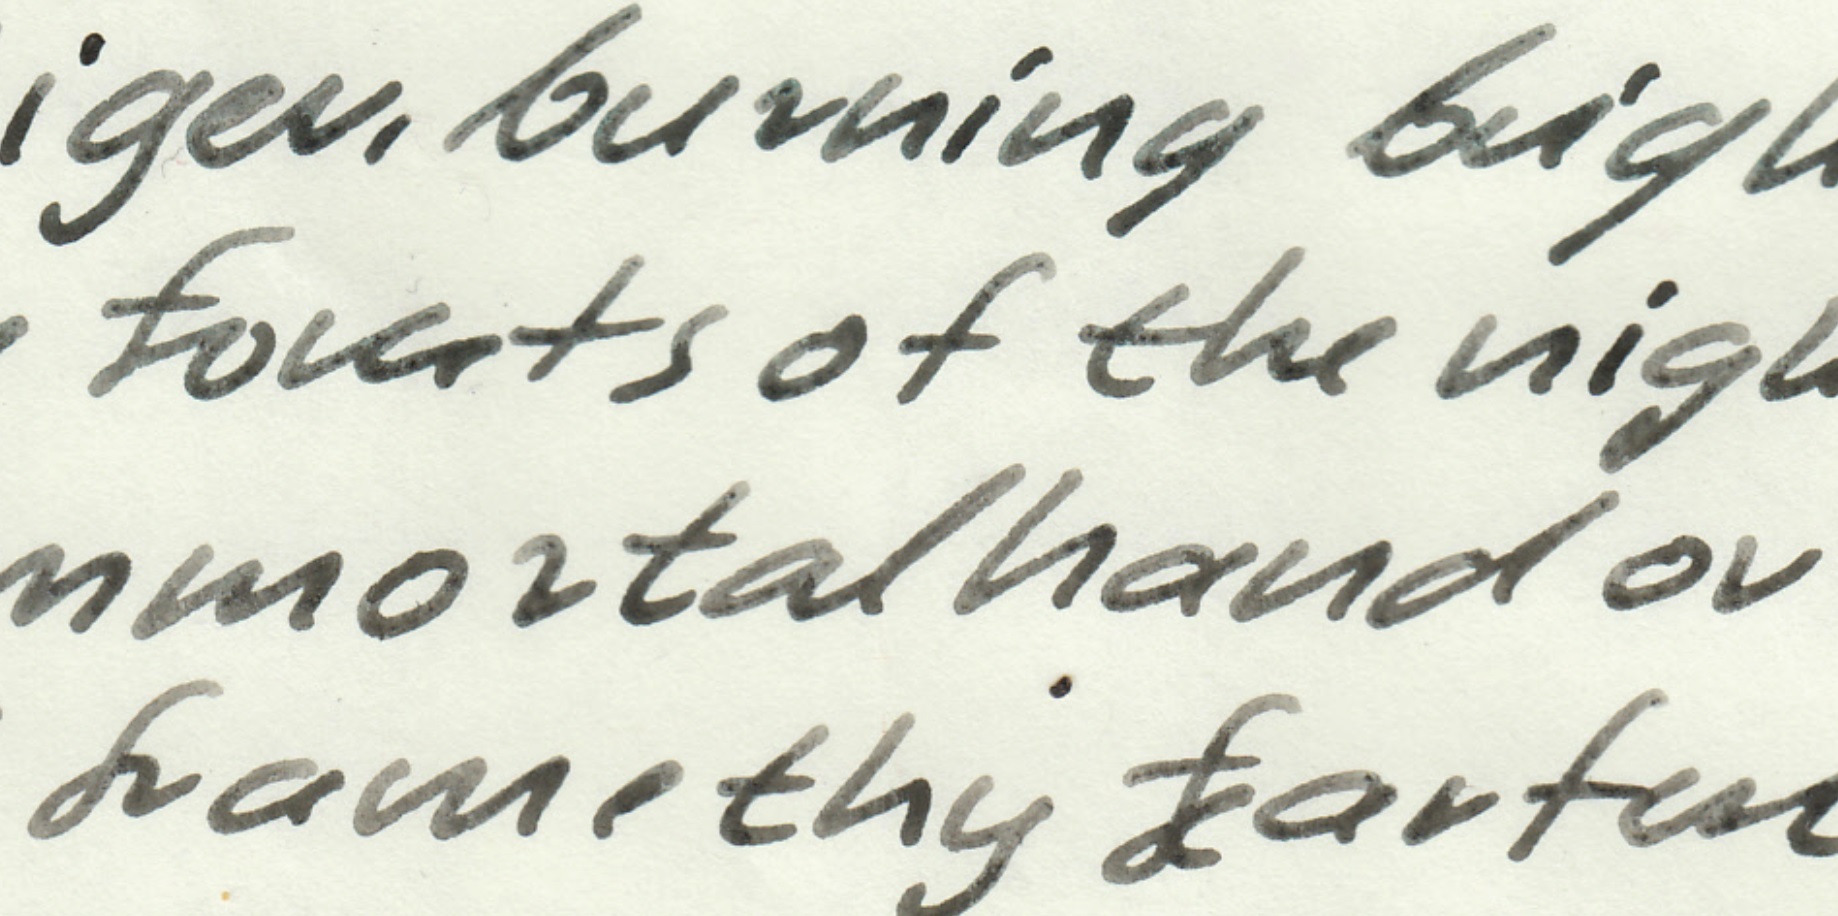 iger, burning brigh
forests of the nigh
mmortal hand or
frame thy fearfu